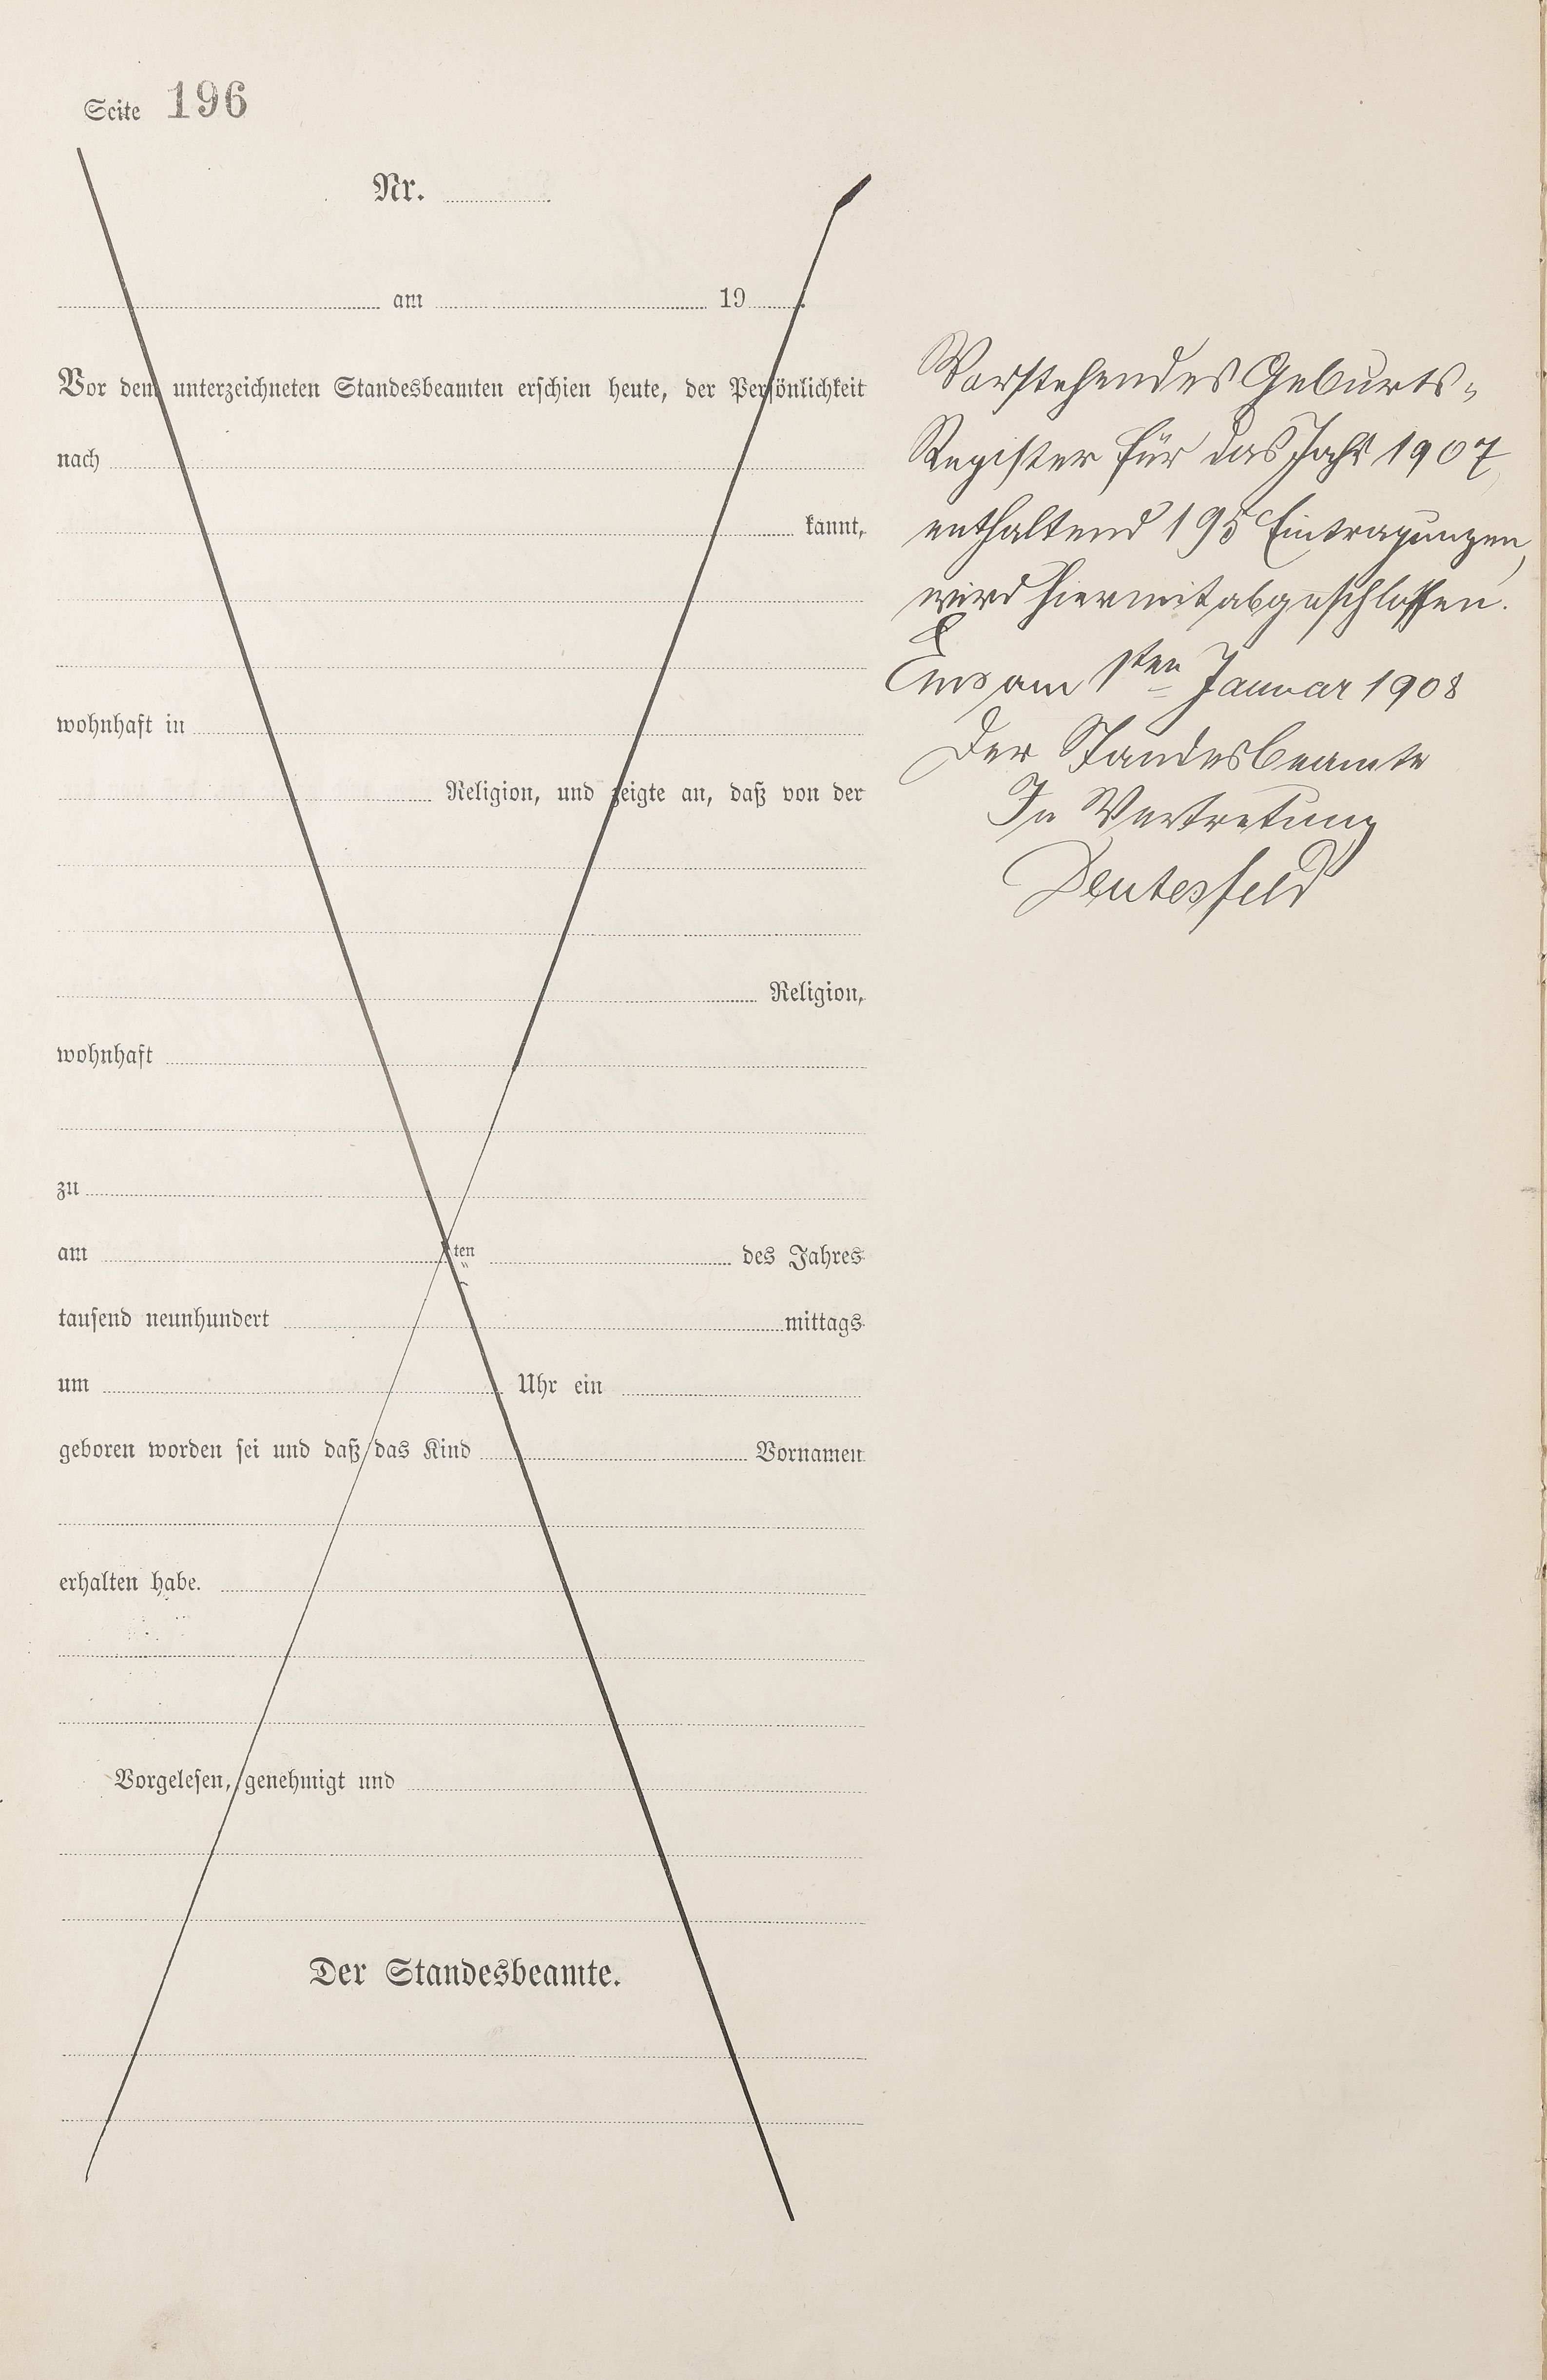 Seite 196
Nr.
am 19
Vor dem unterzeichneten Standesbeamten erschien heute, der Persönlichkeit
nach
kannt,
wohnhaft in
Religion, und zeigte an, daß von der
Religion,
wohnhaft
zu
am ten des Jahres
tausend neunhundert mittags
um Uhr ein
geboren worden sei und daß das Kind Vornamen
erhalten habe.
Vorgelesen, genehmigt und
Der Standesbeamte.
Vorstehendes Geburts-
Register für das Jahr 1907,
enthaltend 195 Eintragungen,
wird hiermit abgeschlossen.
Ems am 1ten Januar 1908
Der Standesbeamte
In Vertretung
Deutesfeld